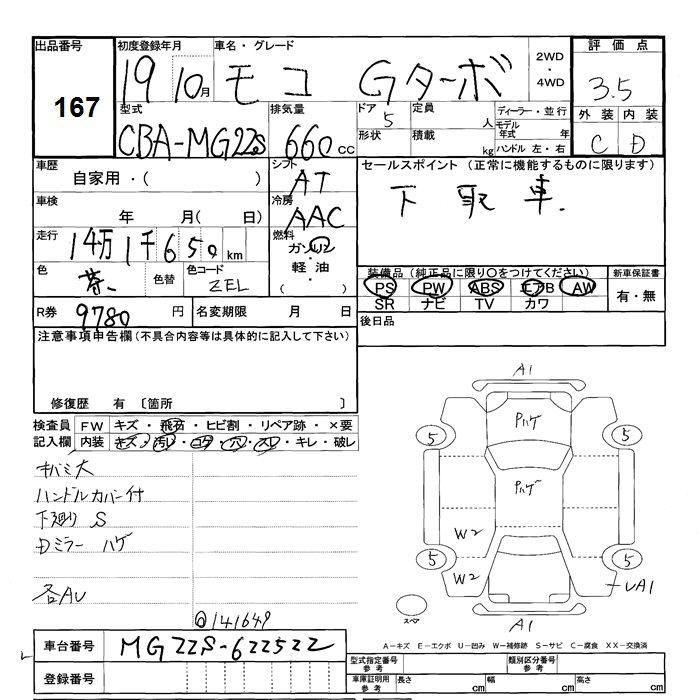 出品番号 167
初度登録年月 19 10月
車名・グレード モコ Gターボ
2WD・4WD
評価点 3.5
型式 CBA-MG22S
排気量 660cc
ドア 5
定員 人
ディーラー・並行
モデル年式 年
形状
積載 kg
ハンドル 左・右
外装 内装
C D
車歴 自家用・( )
シフト AT
セールスポイント (正常に機能するものに限ります)
下取車.
車検 年 月( 日)
冷房 AAC
走行 14万1千650km
燃料 ガソリン 軽油 ( )
色 色替 色コード ZEL
装備品 (純正品に限り○をつけてください)
PS PW ABS エアB AW
SR ナビ TV カワ
新車保証書 有・無
R券 9780円
名変期限 月 日
後日品
注意事項申告欄 (不具合内容等は具体的に記入して下さい)
修復歴 有 〔箇所 〕
検査員記入欄
FW キズ・飛石・ヒビ割・リペア跡・×要
内装 キズ・汚レ・コゲ・穴・スレ・キレ・破レ
キバミ大
ハンドルカバー付
下廻り S
Dミラー ハゲ
各AU
@141649
A1
Pハゲ
5 5
Pハゲ
W2
5 5
W2
UA1
スペア
A1
車台番号 MG22S-622522
登録番号
A−キズ E−エクボ U−凹み W−補修跡 S−サビ C−腐食 XX−交換済
型式指定番号 参考
類別区分番号 参考
車庫証明用 参考 長さ cm 幅 cm 高さ cm